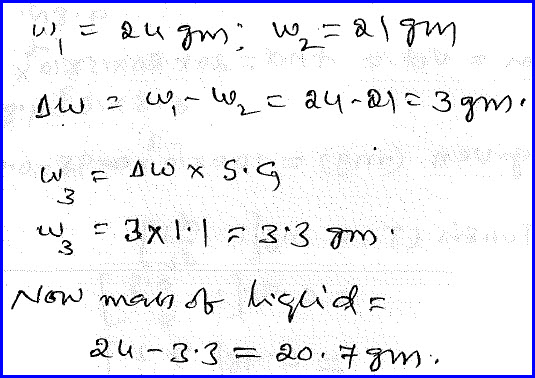 w₁ = 24 gm; w₂ = 21 gm
Δw = w₁ - w₂ = 24 - 21 = 3 gm.
w₃ = Δw × S.G
w₃ = 3×1.1 = 3.3 gm.
Now mass of liquid =
24 - 3.3 = 20.7 gm.